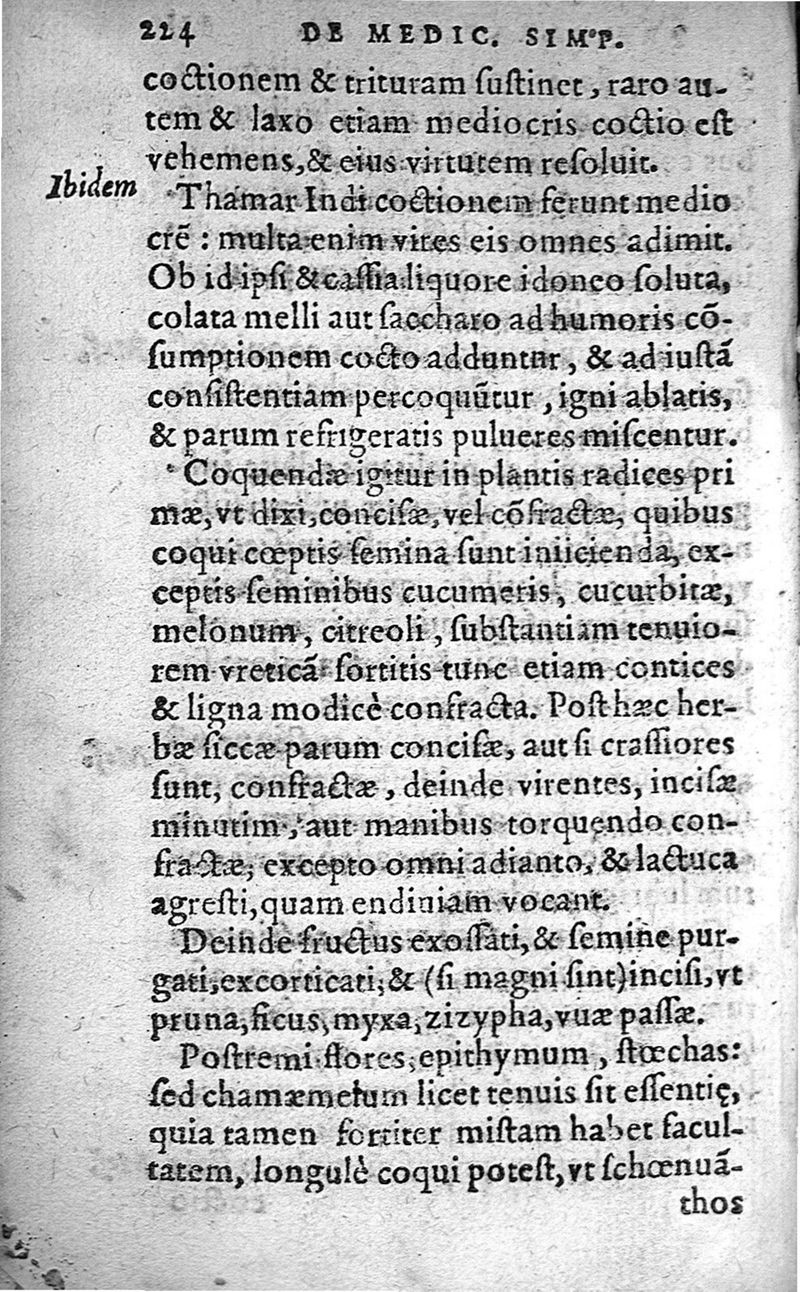 224 DE MEDIC. SIMP.
coctionem & trituram ſuſtinet, raro au-
tem & laxo etiam mediocris coctio eſt
vehemens, & eius virtutem reſoluit.
Ibidem
Thamar Indi coctionem ferunt medio
crē : multa enim vires eis omnes adimit.
Ob id ipſi & caſſia liquore idoneo ſoluta,
colata melli aut ſaccharo ad humoris cō-
ſumptionem cocto adduntur, & ad iuſtā
conſiſtentiam percoquūtur, igni ablatis,
& parum refrigeratis pulueres miſcentur.
Coquendæ igitur in plantis radices pri
mæ, vt dixi, conciſæ, vel cōfractæ, quibus
coqui cœptis ſemina ſunt iniicienda, ex-
ceptis ſeminibus cucumeris, cucurbitæ,
melonum, citreoli, ſubſtantiam tenuio-
rem vreticā ſortitis tunc etiam contices
& ligna modicè confracta. Poſt hæc her-
bæ ſiccæ parum conciſæ, aut ſi craſſiores
ſunt, confractæ, deinde virentes, inciſæ
minutim, aut manibus torquendo con-
fractæ, excepto omni adianto, & lactuca
agreſti, quam endiuiam vocant.
Deinde fructus exoſſati, & ſemine pur-
gati, excorticati, & (ſi magni ſint) inciſi, vt
pruna, ficus, myxa, zizypha, vuæ paſſæ.
Poſtremi flores, epithymum, ſtœchas:
ſed chamæmelum licet tenuis ſit eſſentię,
quia tamen fortiter miſtam habet facul-
tatem, longulè coqui poteſt, vt ſchœnuā-
thos